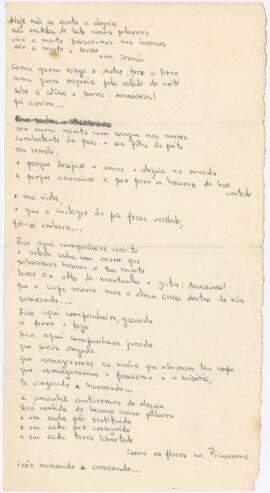 Hoje não se canta a alegria
são vestidas de luto nossas palavras
veio a morte
veio a morte e levou
um irmão
Como quem rasga o ventre, toda a terra
como quem nagueia pela estrada da noite
sobe a colina e berra: Assassinos!
foi assim...
seu nome escrito com sangue nos muros
combatente do povo e seu filho do peito
seu irmão.
e porque desejava o amor e alegria no mundo
e porque anunciava a paz para os homens de boa
vontade
e na vida,
e que o milagre do pão fosse verdade,
foi-se embora...
Fica aqui companheiro escrito
e selado com carne que
saberemos honrar a tua morte
levar ao alto da montanha e gritar: Assassinos!
que o corpo morre mas a alma cresce dentro de nós
semeando...
Fica aqui companheiro, gravado
a ferro e fogo
Fica aqui companheiro jurado
que serás vingado
que esmagaremos as mãos que abriram teu corpo
que esmagaremos o fascismo e a miséria,
te vingando e honrando...
E amanhã cantaremos de alegria
Será vestida de branco nossa palavra
e em cada pão restituído
e em cada paz conseguida
e em cada terra libertada
Como as flores na Primavera
irão nascendo e crescendo...